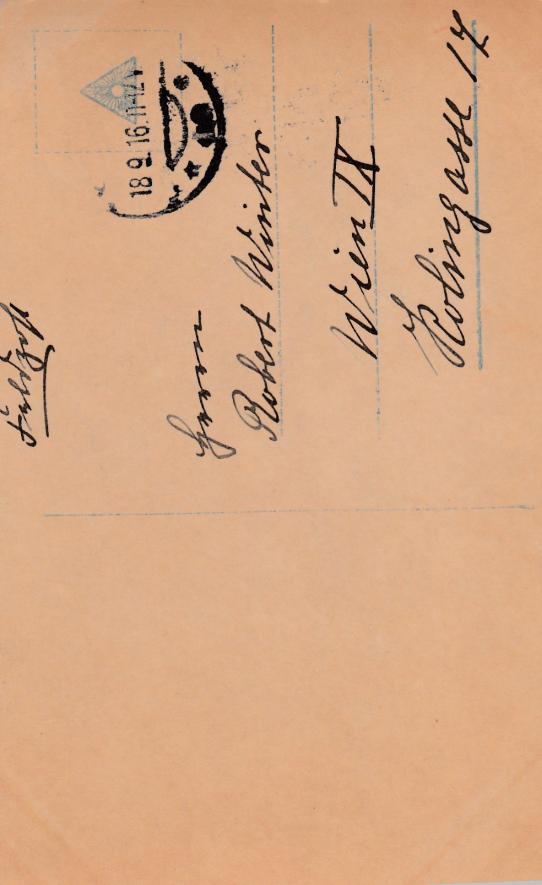 Feldpost
18 9. 16. 11-12 V
Herrn
Robert Winter
Wien IX
Kolingasse 17